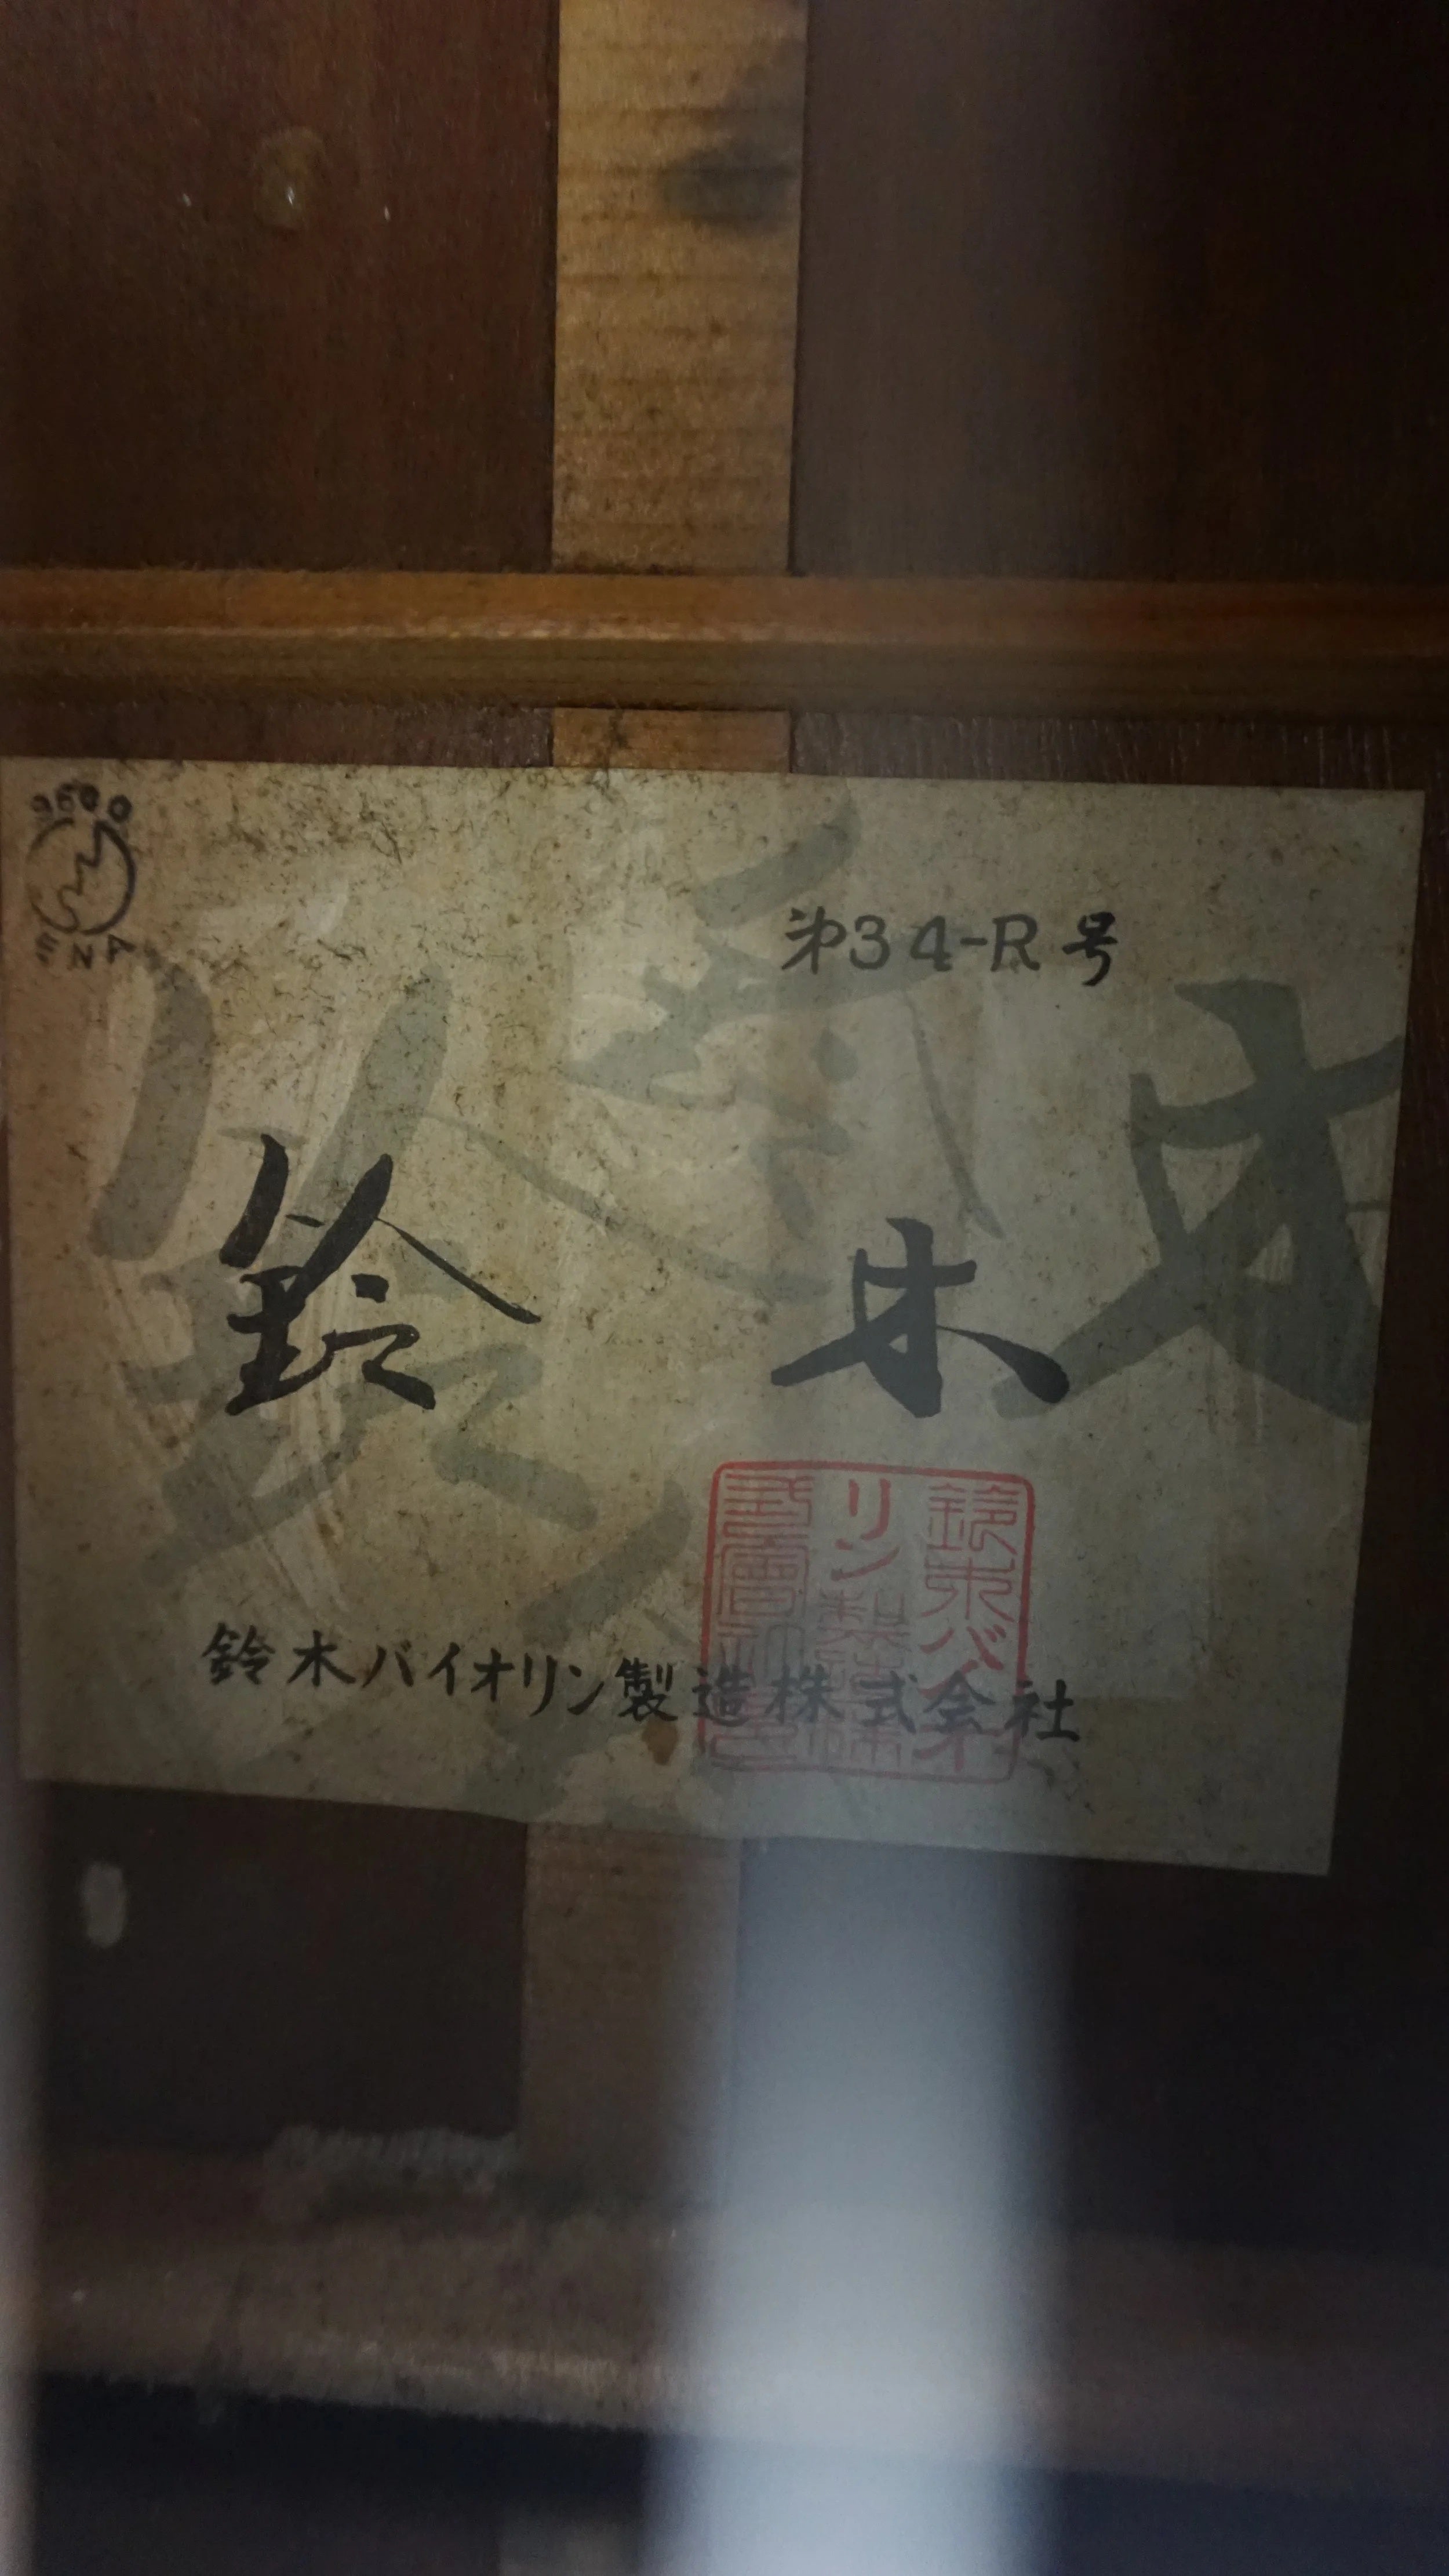 9600
SM
第34-R号
鈴木
鈴木バイオリン製造株式会社
鈴木バイオ
リン製造株
式會社